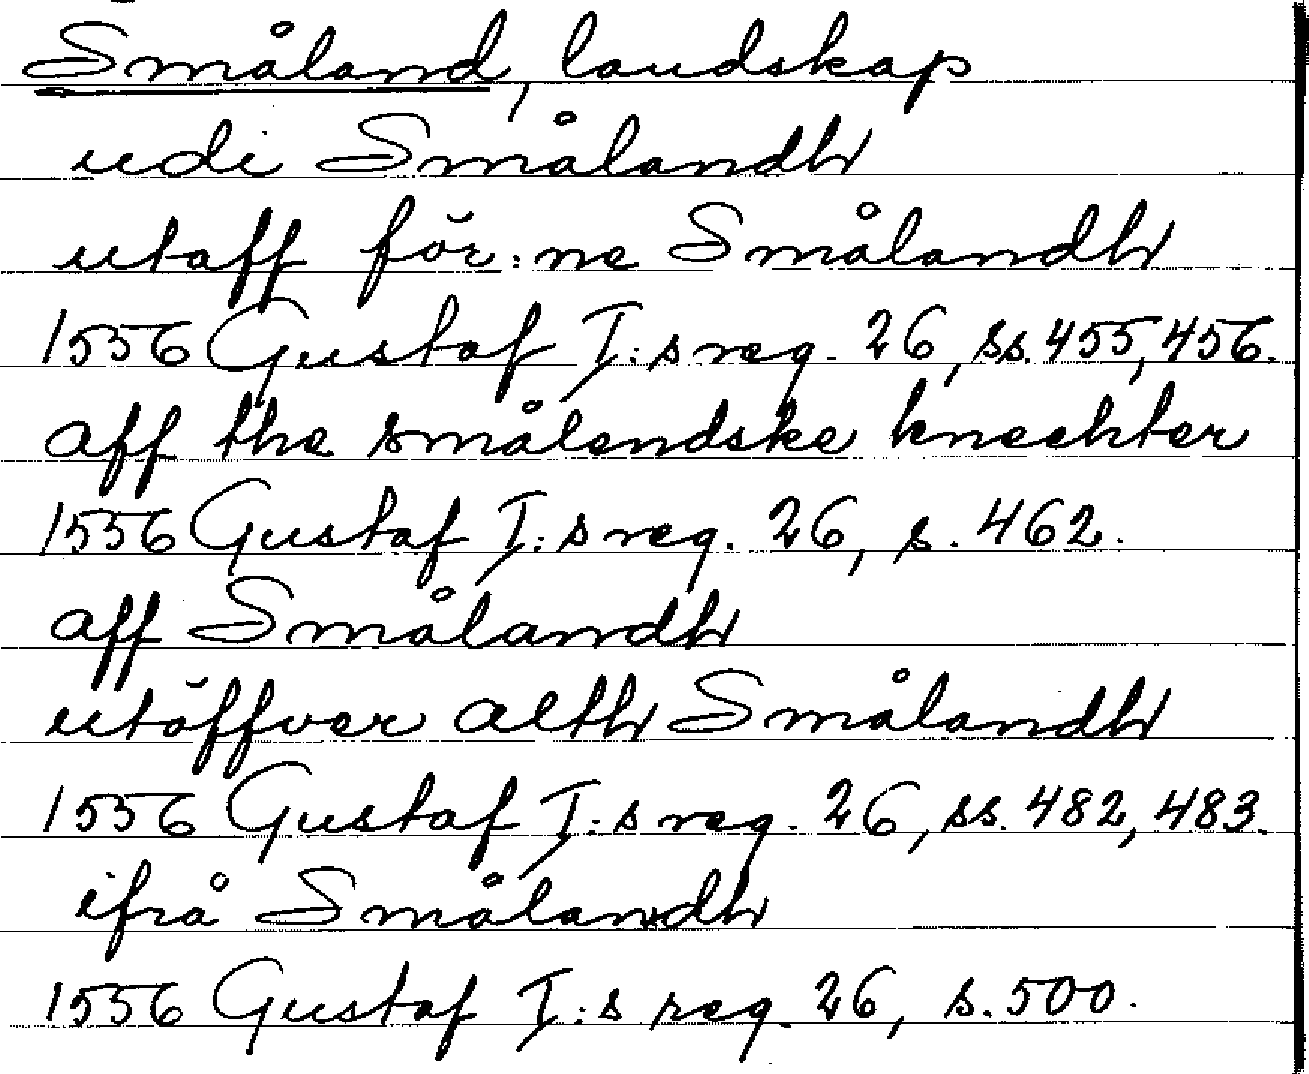 Småland, landskap
udi Smålandh
utaff för:ne Smålandh
1556 Gustaf I:s reg. 26, ss. 455, 456.
aff the smålendske knechter
1556 Gustaf I:s reg. 26, s. 462.
aff Smålandh
utöffver alth Smålandh
1556 Gustaf I:s reg. 26, ss. 482, 483.
ifrå Smålandh
1556 Gustaf I:s reg. 26, s. 500.